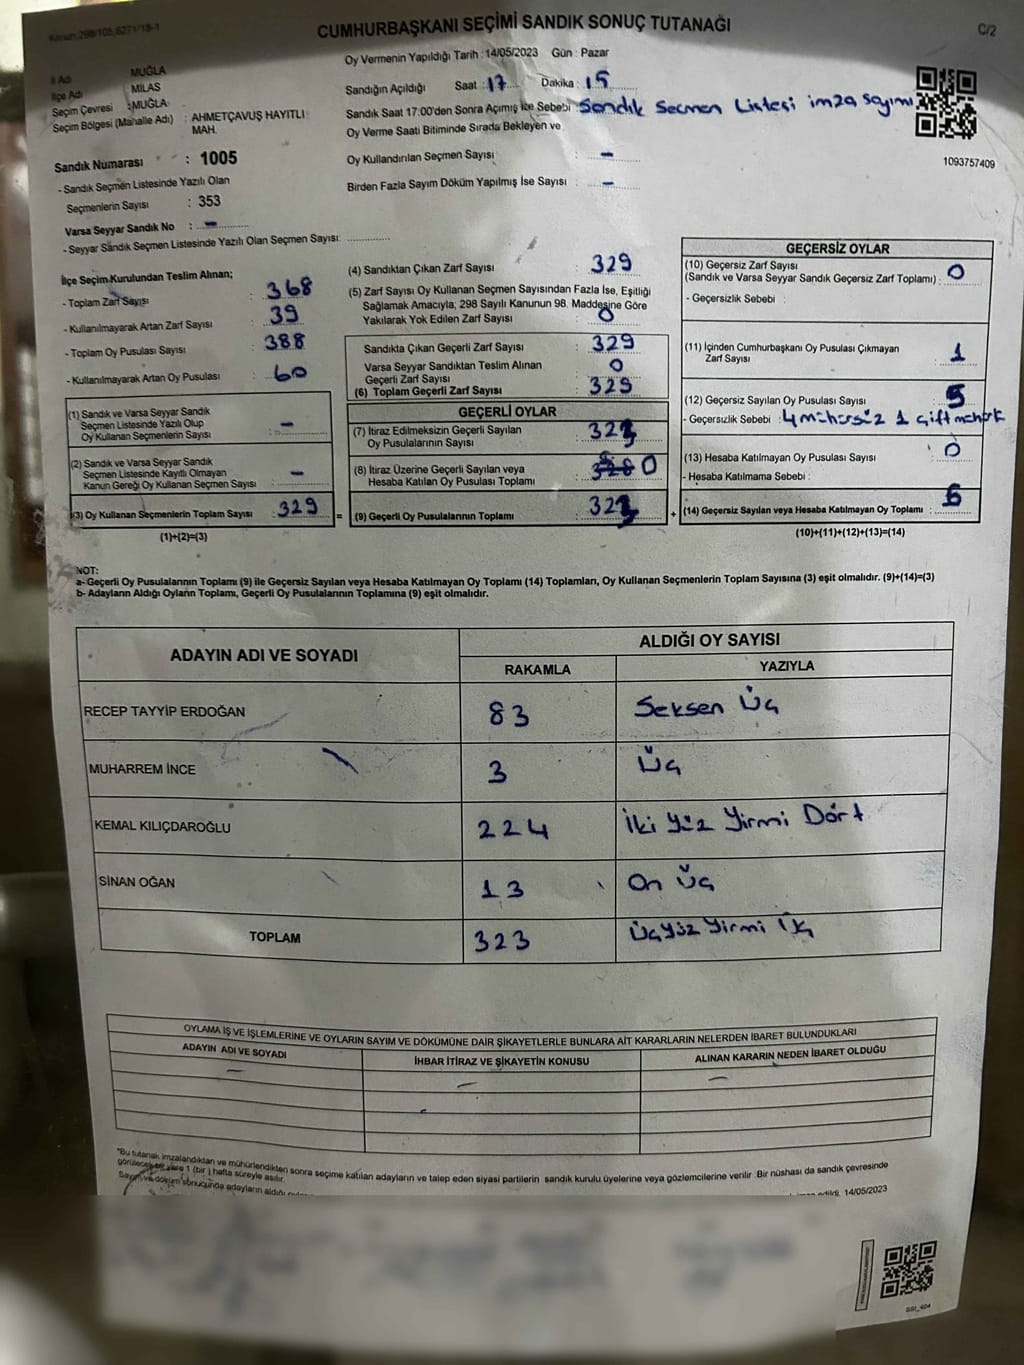 Kanun:298/105,6271/18-1
CUMHURBAŞKANI SEÇİMİ SANDIK SONUÇ TUTANAĞI
C/2
İl Adı MUĞLA
İlçe Adı MİLAS
Seçim Çevresi : MUĞLA
Seçim Bölgesi (Mahalle Adı) : AHMETÇAVUŞ HAYITLI MAH.
Sandık Numarası : 1005
- Sandık Seçmen Listesinde Yazılı Olan
Seçmenlerin Sayısı : 353
Varsa Seyyar Sandık No : -
- Seyyar Sandık Seçmen Listesinde Yazılı Olan Seçmen Sayısı:
Oy Vermenin Yapıldığı Tarih : 14/05/2023 Gün : Pazar
Sandığın Açıldığı Saat : 17 Dakika : 15
Sandık Saat 17:00'den Sonra Açımış İse Sebebi Sandık Secmen Listesi imza sayımı
Oy Verme Saati Bitiminde Sırada Bekleyen ve
Oy Kullandırılan Seçmen Sayısı : -
Birden Fazla Sayım Döküm Yapılmış İse Sayısı : -
1093757409
İlçe Seçim Kurulundan Teslim Alınan;
- Toplam Zarf Sayısı : 368
- Kullanılmayarak Artan Zarf Sayısı : 39
- Toplam Oy Pusulası Sayısı : 388
- Kullanılmayarak Artan Oy Pusulası : 60
(1) Sandık ve Varsa Seyyar Sandık
Seçmen Listesinde Yazılı Olup
Oy Kullanan Seçmenlerin Sayısı : -
(2) Sandık ve Varsa Seyyar Sandık
Seçmen Listesinde Kayıtlı Olmayan
Kanun Gereği Oy Kullanan Seçmen Sayısı : -
(3) Oy Kullanan Seçmenlerin Toplam Sayısı : 329
(1)+(2)=(3)
=
(4) Sandıktan Çıkan Zarf Sayısı : 329
(5) Zarf Sayısı Oy Kullanan Seçmen Sayısından Fazla İse, Eşitliği
Sağlamak Amacıyla; 298 Sayılı Kanunun 98. Maddesine Göre
Yakılarak Yok Edilen Zarf Sayısı : 0
Sandıkta Çıkan Geçerli Zarf Sayısı : 329
Varsa Seyyar Sandıktan Teslim Alınan
Geçerli Zarf Sayısı : 0
(6) Toplam Geçerli Zarf Sayısı : 329
GEÇERLİ OYLAR
(7) İtiraz Edilmeksizin Geçerli Sayılan
Oy Pusulalarının Sayısı : 323
(8) İtiraz Üzerine Geçerli Sayılan veya
Hesaba Katılan Oy Pusulası Toplamı : 0
(9) Geçerli Oy Pusulalarının Toplamı : 323
+
GEÇERSİZ OYLAR
(10) Geçersiz Zarf Sayısı
(Sandık ve Varsa Seyyar Sandık Geçersiz Zarf Toplamı) : 0
- Geçersizlik Sebebi :
(11) İçinden Cumhurbaşkanı Oy Pusulası Çıkmayan
Zarf Sayısı : 1
(12) Geçersiz Sayılan Oy Pusulası Sayısı : 5
- Geçersizlik Sebebi : 4 mühürsüz 1 çift mühür
(13) Hesaba Katılmayan Oy Pusulası Sayısı : 0
- Hesaba Katılmama Sebebi :
(14) Geçersiz Sayılan veya Hesaba Katılmayan Oy Toplamı : 6
(10)+(11)+(12)+(13)=(14)
NOT:
a- Geçerli Oy Pusulalarının Toplamı (9) ile Geçersiz Sayılan veya Hesaba Katılmayan Oy Toplamı (14) Toplamları, Oy Kullanan Seçmenlerin Toplam Sayısına (3) eşit olmalıdır. (9)+(14)=(3)
b- Adayların Aldığı Oyların Toplamı, Geçerli Oy Pusulalarının Toplamına (9) eşit olmalıdır.
ADAYIN ADI VE SOYADI
ALDIĞI OY SAYISI
RAKAMLA YAZIYLA
RECEP TAYYİP ERDOĞAN 83 Seksen Üç
MUHARREM İNCE 3 Üç
KEMAL KILIÇDAROĞLU 224 İki yüz Yirmi Dört
SİNAN OĞAN 13 On Üç
TOPLAM 323 Üçyüz Yirmi Üç
OYLAMA İŞ VE İŞLEMLERİNE VE OYLARIN SAYIM VE DÖKÜMÜNE DAİR ŞİKAYETLERLE BUNLARA AİT KARARLARIN NELERDEN İBARET BULUNDUKLARI
ADAYIN ADI VE SOYADI İHBAR İTİRAZ VE ŞİKAYETİN KONUSU ALINAN KARARIN NEDEN İBARET OLDUĞU
- - -
"Bu tutanak imzalandıktan ve mühürlendikten sonra seçime katılan adayların ve talep eden siyasi partilerin sandık kurulu üyelerine veya gözlemcilerine verilir. Bir nüshası da sandık çevresinde
1 (bir) hafta süreyle asılır.
Sayım ve döküm sonucunda adayların aldığı
edildi. 14/05/2023